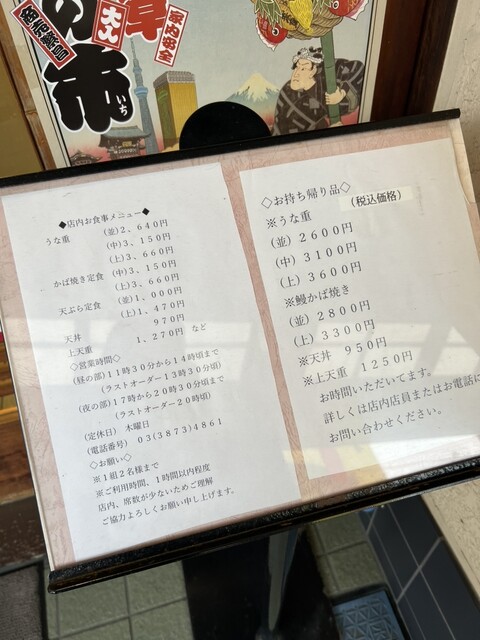 の市
いち
大
家内安全
◆店内お食事メニュー◆
うな重 (並)2、640円
(中)3、150円
(上)3、660円
かば焼き定食 (中)3、150円
(上)3、660円
天ぷら定食 (並)1、000円
(上)1、470円
天丼 970円
上天重 1、270円 など
◇営業時間◇
(昼の部)11時30分から14時頃まで
(ラストオーダー13時30分頃)
(夜の部)17時から20時30分頃まで
(ラストオーダー20時頃)
(定休日) 木曜日
(電話番号) 03(3873)4861
◇お願い◇
※1組2名様まで
※ご利用時間、1時間以内程度
店内、席数が少ないためご理解
ご協力よろしくお願い申し上げます。
◇お持ち帰り品◇
(税込価格)
※うな重
(並) 2600円
(中) 3100円
(上) 3600円
※鰻かば焼き
(並) 2800円
(上) 3300円
※天丼 950円
※上天重 1250円
お時間いただいてます。
詳しくは店内店員またはお電話に
お問い合わせください。